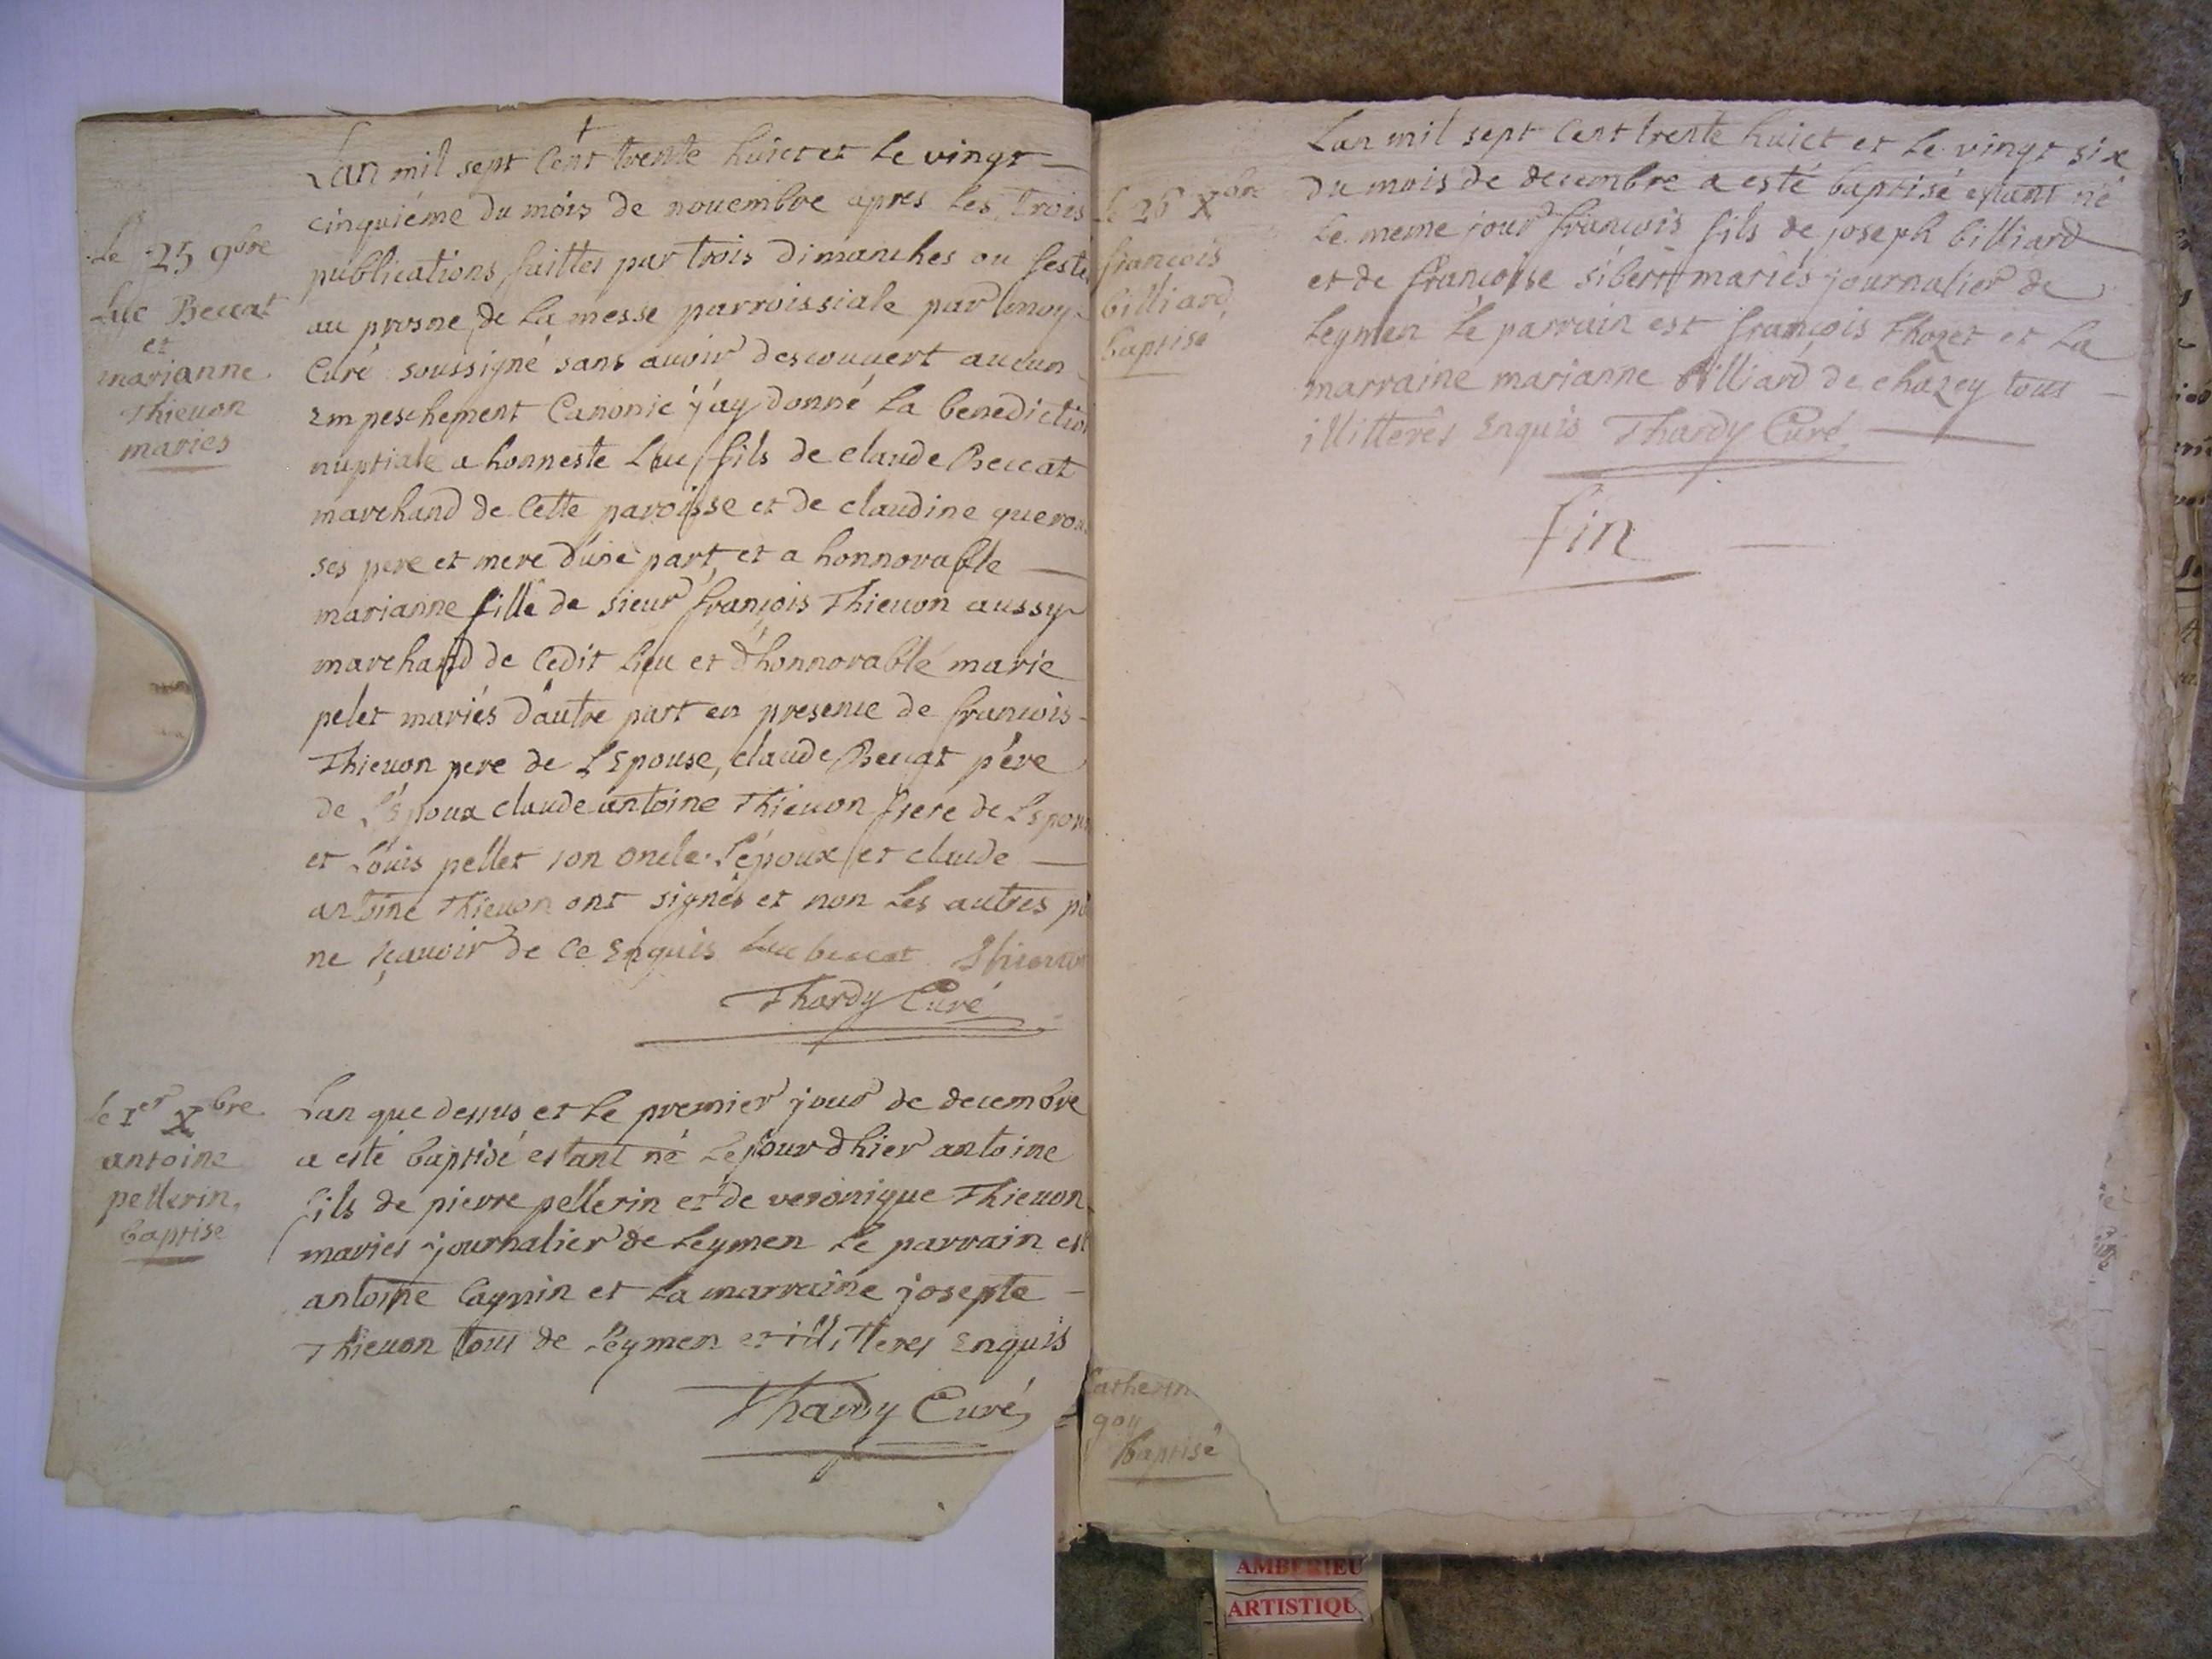 Le 25 9bre
Luc Beccat
et
marianne
Thieuon
mariés
†
Lan mil sept Cent trente huict et Le vingt
cinquiéme du mois de nouembre apres Les trois
publications faittes par trois dimanches ou feste
au prosne de La messe parroissiale par moy
Curé soussigné sans auoir descouuert aucun
Empeschement Canonic j'ay donné La benedictio
nuptiale a honneste Luc fils de claude Beccat
marchand de Cette paroisse et de claudine
ses pere et mere d'une part, et a honnorable
marianne fille de sieur françois Thieuon aussy
marchand de Cedit Lieu et d'honnorable marie
pelet mariés d'autre part en presence de francois
Thieuon pere de L'Epouse, claude Beccat pére
de L'Epoux claude antoine Thieuon frere de L'epou
et Loüis pellet son oncle. L'époux et claude
antoine Thieuon ont signés et non Les autres
ne sçauoir de Ce Enquis Luc beccat Thieuon
Thardy Curé
le 1er Xbre
antoine
pellerin,
baptisé
Lan que dessus et Le premier jour de decembre
a esté baptisé estant né Le jour d'hier antoine
fils de pierre pellerin et de veronique Thieuon
mariés journalier de Leymen Le parrain est
antoine et La marraine josepte
Thieuon tous de Leymen et illitterés Enquis
Thardy Curé
le 26 Xbre
francois
billiard,
baptisé
Lan mil sept Cent trente huict et Le vingt six
du mois de decembre a esté baptisé estant né
Le meme jour francois fils de joseph billiard
et de françoise sibert mariés journalier de
Leymen Le parrain est françois Thozet et La
marraine marianne billiard de chazey tous
illitterés Enquis Thardy Curé
fin
Catherin
goy
baptisé
AMBERIEU
ARTISTIQU